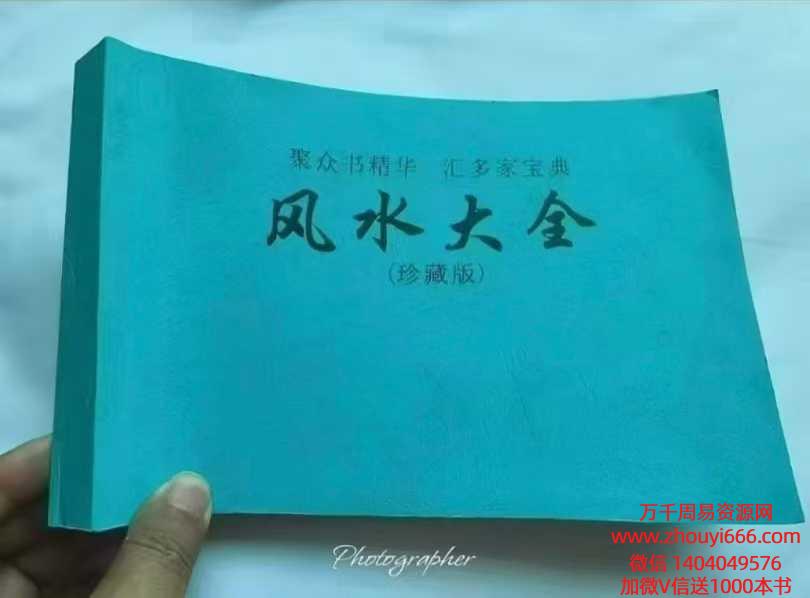 聚众书精华 汇多家宝典
风水大全
(珍藏版)
Photographer
万千周易资源网
www.zhouyi666.com
微信 1404049576
加微V信送1000本书